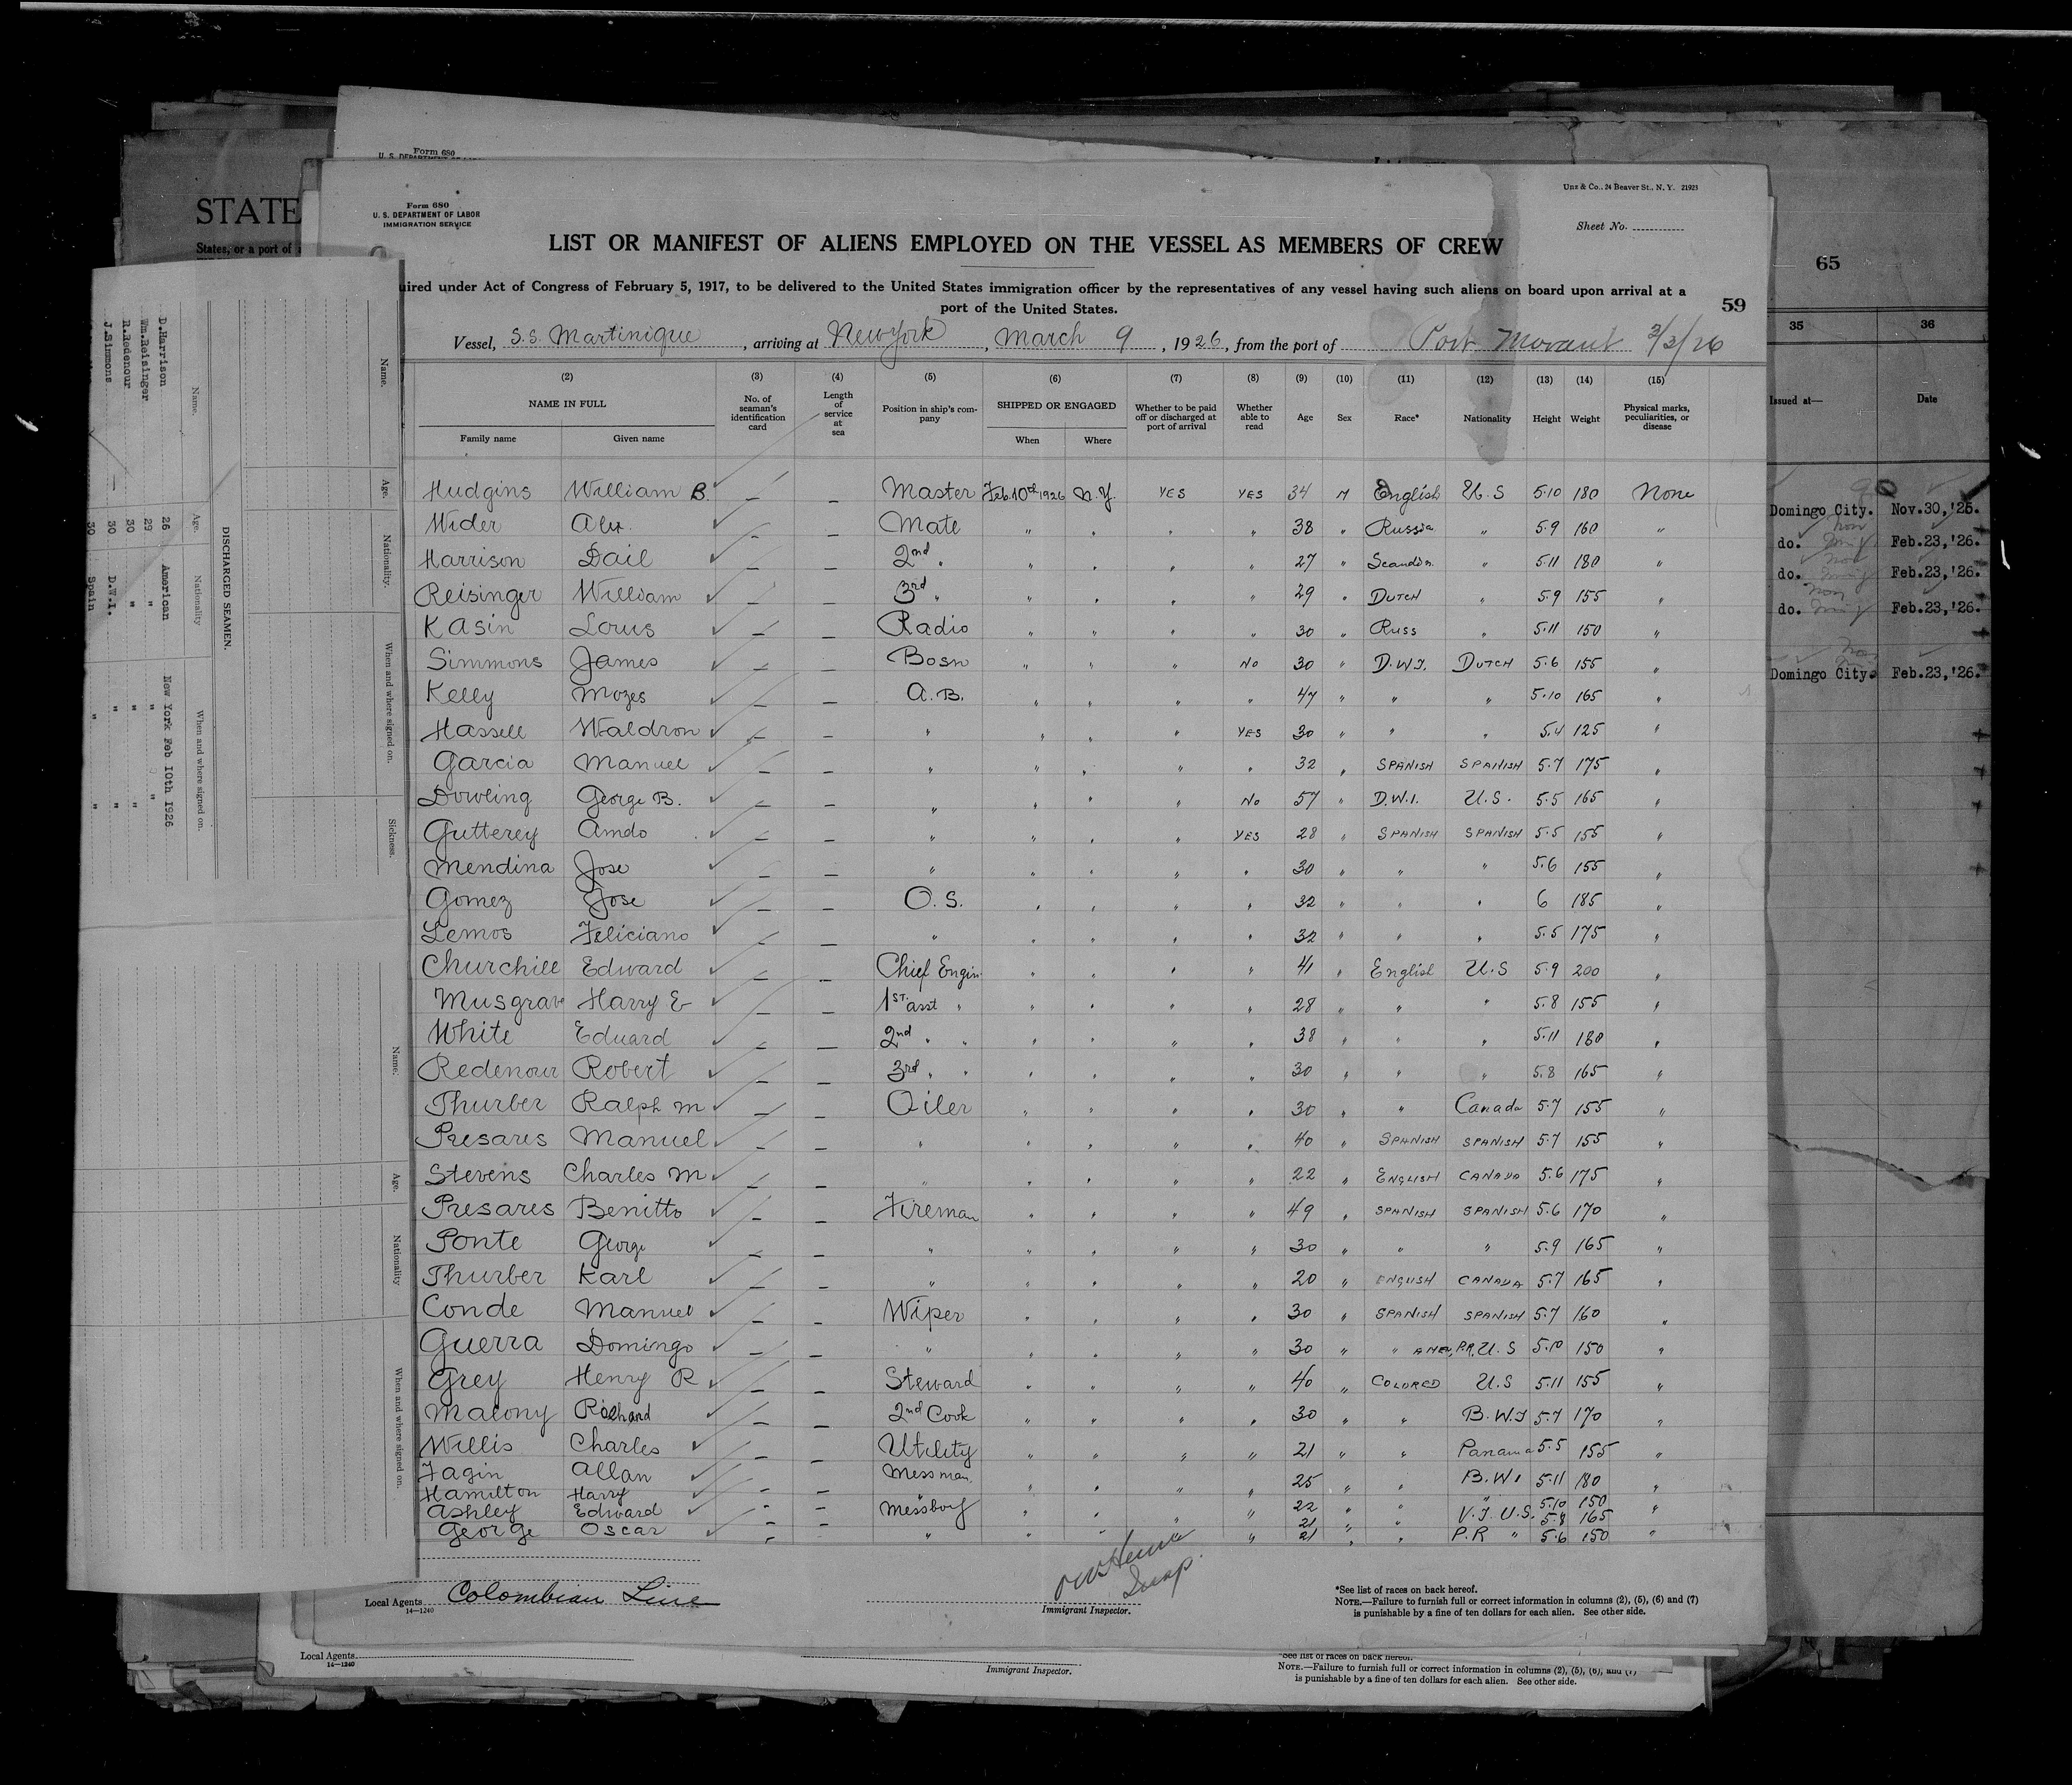 Form 680
U. S. DEPARTMENT OF LABOR
STATE
States, or a port of
Form 680
U. S. DEPARTMENT OF LABOR
IMMIGRATION SERVICE
Unz & Co., 24 Beaver St., N. Y. 21923
Sheet No.
LIST OR MANIFEST OF ALIENS EMPLOYED ON THE VESSEL AS MEMBERS OF CREW
uired under Act of Congress of February 5, 1917, to be delivered to the United States immigration officer by the representatives of any vessel having such aliens on board upon arrival at a
port of the United States.
59
65
Vessel, S.S. Martinique, arriving at New York, March 9, 1926, from the port of Port Morant 3/3/26
(2) (3) (4) (5) (6) (7) (8) (9) (10) (11) (12) (13) (14) (15)
NAME IN FULL
Family name Given name
No. of seaman's identification card
Length of service at sea
Position in ship's company
SHIPPED OR ENGAGED
When Where
Whether to be paid off or discharged at port of arrival
Whether able to read
Age Sex Race* Nationality Height Weight
Physical marks, peculiarities, or disease
Hudgins William B. — — Master Feb. 10th 1926 N.Y. YES YES 34 M English U.S 5.10 180 None
Wider Alex. — — Mate " " " " 38 " Russia " 5.9 160 "
Harrison Dail — — 2nd " " " " " 27 " Scandin. " 5.11 180 "
Reisinger William — — 3rd " " " " " 29 " DUTCH " 5.9 155 "
Kasin Louis — — Radio " " " " 30 " Russ " 5.11 150 "
Simmons James — — Bosn " " " No 30 " D.W.I. DUTCH 5.6 155 "
Kelly Mozes — — A.B. " " " " 47 " " " 5.10 165 "
Hassell Waldron — — " " " " YES 30 " " " 5.4 125 "
Garcia Manuel — — " " " " " 32 " SPANISH SPANISH 5.7 175 "
Dowling George B. — — " " " " No 57 " D.W.I. U.S. 5.5 165 "
Gutterey Amdo — — " " " " YES 28 " SPANISH SPANISH 5.5 155 "
Mendina Jose — — " " " " " 30 " " " 5.6 155 "
Gomez Jose — — O.S. " " " " 32 " " " 6 185 "
Lemos Feliciano — — " " " " " 32 " " " 5.5 175 "
Churchill Edward — — Chief Engin. " " " " 41 " English U.S 5.9 200 "
Musgrave Harry E — — 1ST asst " " " " " 28 " " " 5.8 155 "
White Eduard — — 2nd " " " " " " 38 " " " 5.11 180 "
Redenour Robert — — 3rd " " " " " " 30 " " " 5.8 165 "
Thurber Ralph M — — Oiler " " " " 30 " " Canada 5.7 155 "
Presares Manuel — — " " " " " 40 " SPANISH SPANISH 5.7 155 "
Stevens Charles M — — " " " " " 22 " ENGLISH CANADA 5.6 175 "
Presares Benitto — — Fireman " " " " 49 " SPANISH SPANISH 5.6 170 "
Ponte George — — " " " " " 30 " " " 5.9 165 "
Thurber Karl — — " " " " " 20 " ENGLISH CANADA 5.7 165 "
Conde Manuel — — Wiper " " " " 30 " SPANISH SPANISH 5.7 160 "
Guerra Domingo — — " " " " " 30 " " AMER, P.R, U.S 5.10 150 "
Grey Henry R — — Steward " " " " 40 " COLORED U.S 5.11 155 "
Malony Richard — — 2nd Cook " " " " 30 " " B.W.I 5.7 170 "
Willis Charles — — Utility " " " " 21 " " Panama 5.5 155 "
Fagin Allan — — Messman " " " " 25 " " B.W.I 5.11 180 "
Hamilton Harry — — " 22 " " " 5.10 150 "
Ashley Edward — — Messboy " " " " 21 " " V.I. U.S. 5.8 165
George Oscar — — " " " " 21 " " P.R " 5.6 150 "
Local Agents Colombian Line
14—1240
Insp.
Immigrant Inspector.
*See list of races on back hereof.
NOTE.—Failure to furnish full or correct information in columns (2), (5), (6) and (7)
is punishable by a fine of ten dollars for each alien. See other side.
Local Agents
14—1240
Immigrant Inspector.
*See list of races on back hereof.
NOTE.—Failure to furnish full or correct information in columns (2), (5), (6), and (7)
is punishable by a fine of ten dollars for each alien. See other side.
35 36
Issued at— Date
Domingo City. Nov.30,'25.
do. Feb.23,'26.
do. Feb.23,'26.
do. Feb.23,'26.
Domingo City. Feb.23,'26.
DISCHARGED SEAMEN.
Name. Age. Nationality When and where signed on.
D.Harrison 26 American New York Feb 10th 1926
Wm.Reisinger 29 " " "
R.Redenour 30 " " "
J.Simmons 30 D.W.I. " "
30 Spain " "
Name. Age. Nationality. When and where signed on. Sickness.
Name. Age. Nationality When and where signed on.